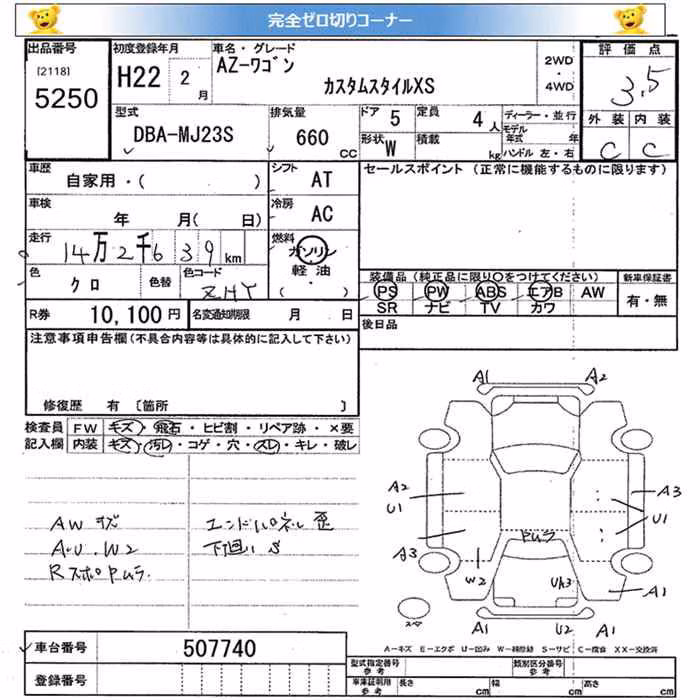 完全ゼロ切りコーナー
出品番号
[2118]
5250
初度登録年月
H22 2 月
車名・グレード
AZ-ワゴン
カスタムスタイルXS
2WD
・
4WD
評価点
3.5
外装 内装
C C
型式
DBA-MJ23S
排気量
660 CC
ドア 5
定員 4 人
形状 W
積載 kg
ディーラー・並行
モデル年式 年
ハンドル 左・右
車歴
自家用・( )
シフト
AT
セールスポイント (正常に機能するものに限ります)
車検
年 月( 日)
冷房
AC
走行
14万2千639km
燃料
ガソリン
軽油
・
( )
色
クロ
色替
色コード
ZHY
装備品(純正品に限り○をつけてください)
PS PW ABS エアB AW
SR ナビ TV カワ
新車保証書
有・無
R券 10,100円
名変通知期限 月 日
後日品
注意事項申告欄(不具合内容等は具体的に記入して下さい)
修復歴 有 〔箇所 〕
検査員
記入欄
FW キズ・飛石・ヒビ割・リペア跡・×要
内装 キズ・汚レ・コゲ・穴・スレ・キレ・破レ
AWキズ
A.U.W2
RスポPUラ
エンドパネル歪
下廻りS
A1 A2
A2
U1
A3
A3
U1
PUラ
W2
Uh3
A1
スペア
A1 U2 A1
A-キズ E-エクボ U-凹み W-補修跡 S-サビ C-腐食 XX-交換済
車台番号 507740
登録番号
型式指定番号
参考
類別区分番号
参考
車庫証明用
参考
長さ cm
幅 cm
高さ cm